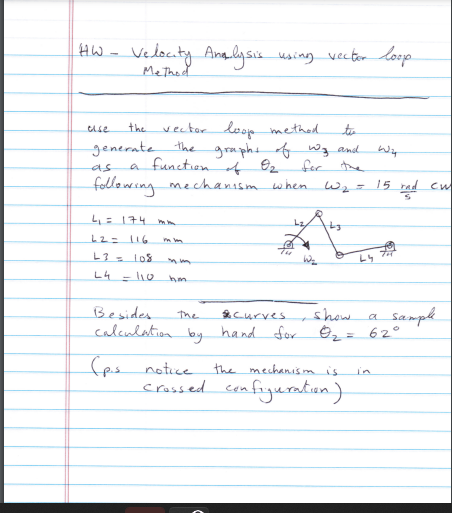 HW - Velocity Analysis using vector loop
Method
use the vector loop method to
generate the graphs of ω3 and ω4
as a function of θ2 for the
following mechanism when ω2 = 15 rad/s CW
L1 = 174 mm
L2 = 116 mm
L3 = 108 mm
L4 = 110 mm
L2 L3
ω2 L4
Besides the curves, show a sample
calculation by hand for θ2 = 62°
(p.s notice the mechanism is in
crossed configuration)